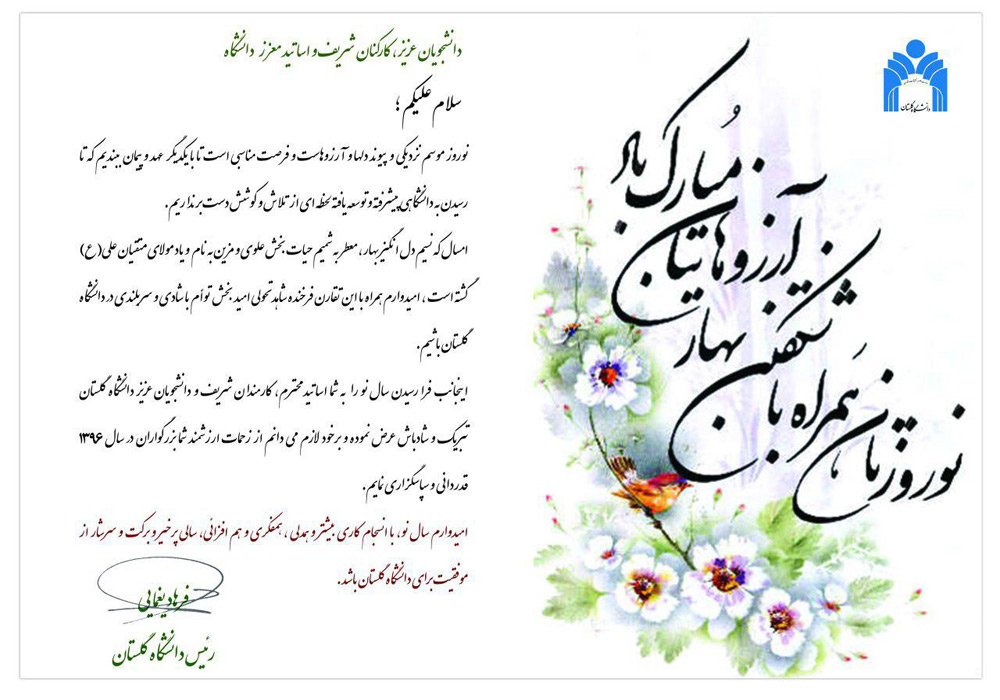 دانشگاه گلستان
نوروزتان همراه با
شکفتن بهار
آرزوهایتان
مبارک باد
دانشجویان عزیز، کارکنان شریف و اساتید معزز دانشگاه
سلام علیکم ؛
نوروز موسم نزدیکی و پیوند دلها و آرزوهاست و فرصت مناسبی است تا با یکدیگر عهد و پیمان ببندیم که تا
رسیدن به دانشگاهی پیشرفته و توسعه یافته لحظه ای از تلاش و کوشش دست برنداریم.
امسال که نسیم دل انگیز بهار، معطر به شمیم حیات بخش علوی و مزین به نام و یاد مولای متقیان علی(ع)
گشته است ، امیدوارم همراه با این تقارن فرخنده شاهد تحولی امید بخش توأم با شادی و سربلندی در دانشگاه
گلستان باشیم.
اینجانب فرا رسیدن سال نو را به شما اساتید محترم، کارمندان شریف و دانشجویان عزیز دانشگاه گلستان
تبریک و شادباش عرض نموده و برخود لازم می دانم از زحمات ارزشمند شما بزرگواران در سال ۱۳۹۶
قدردانی و سپاسگزاری نمایم.
امیدوارم سال نو، با انسجام کاری بیشتر و همدلی ، همفکری و هم افزائی، سالی پرخیر و برکت و سرشار از
موفقیت برای دانشگاه گلستان باشد.
فرهاد یغمایی
رئیس دانشگاه گلستان